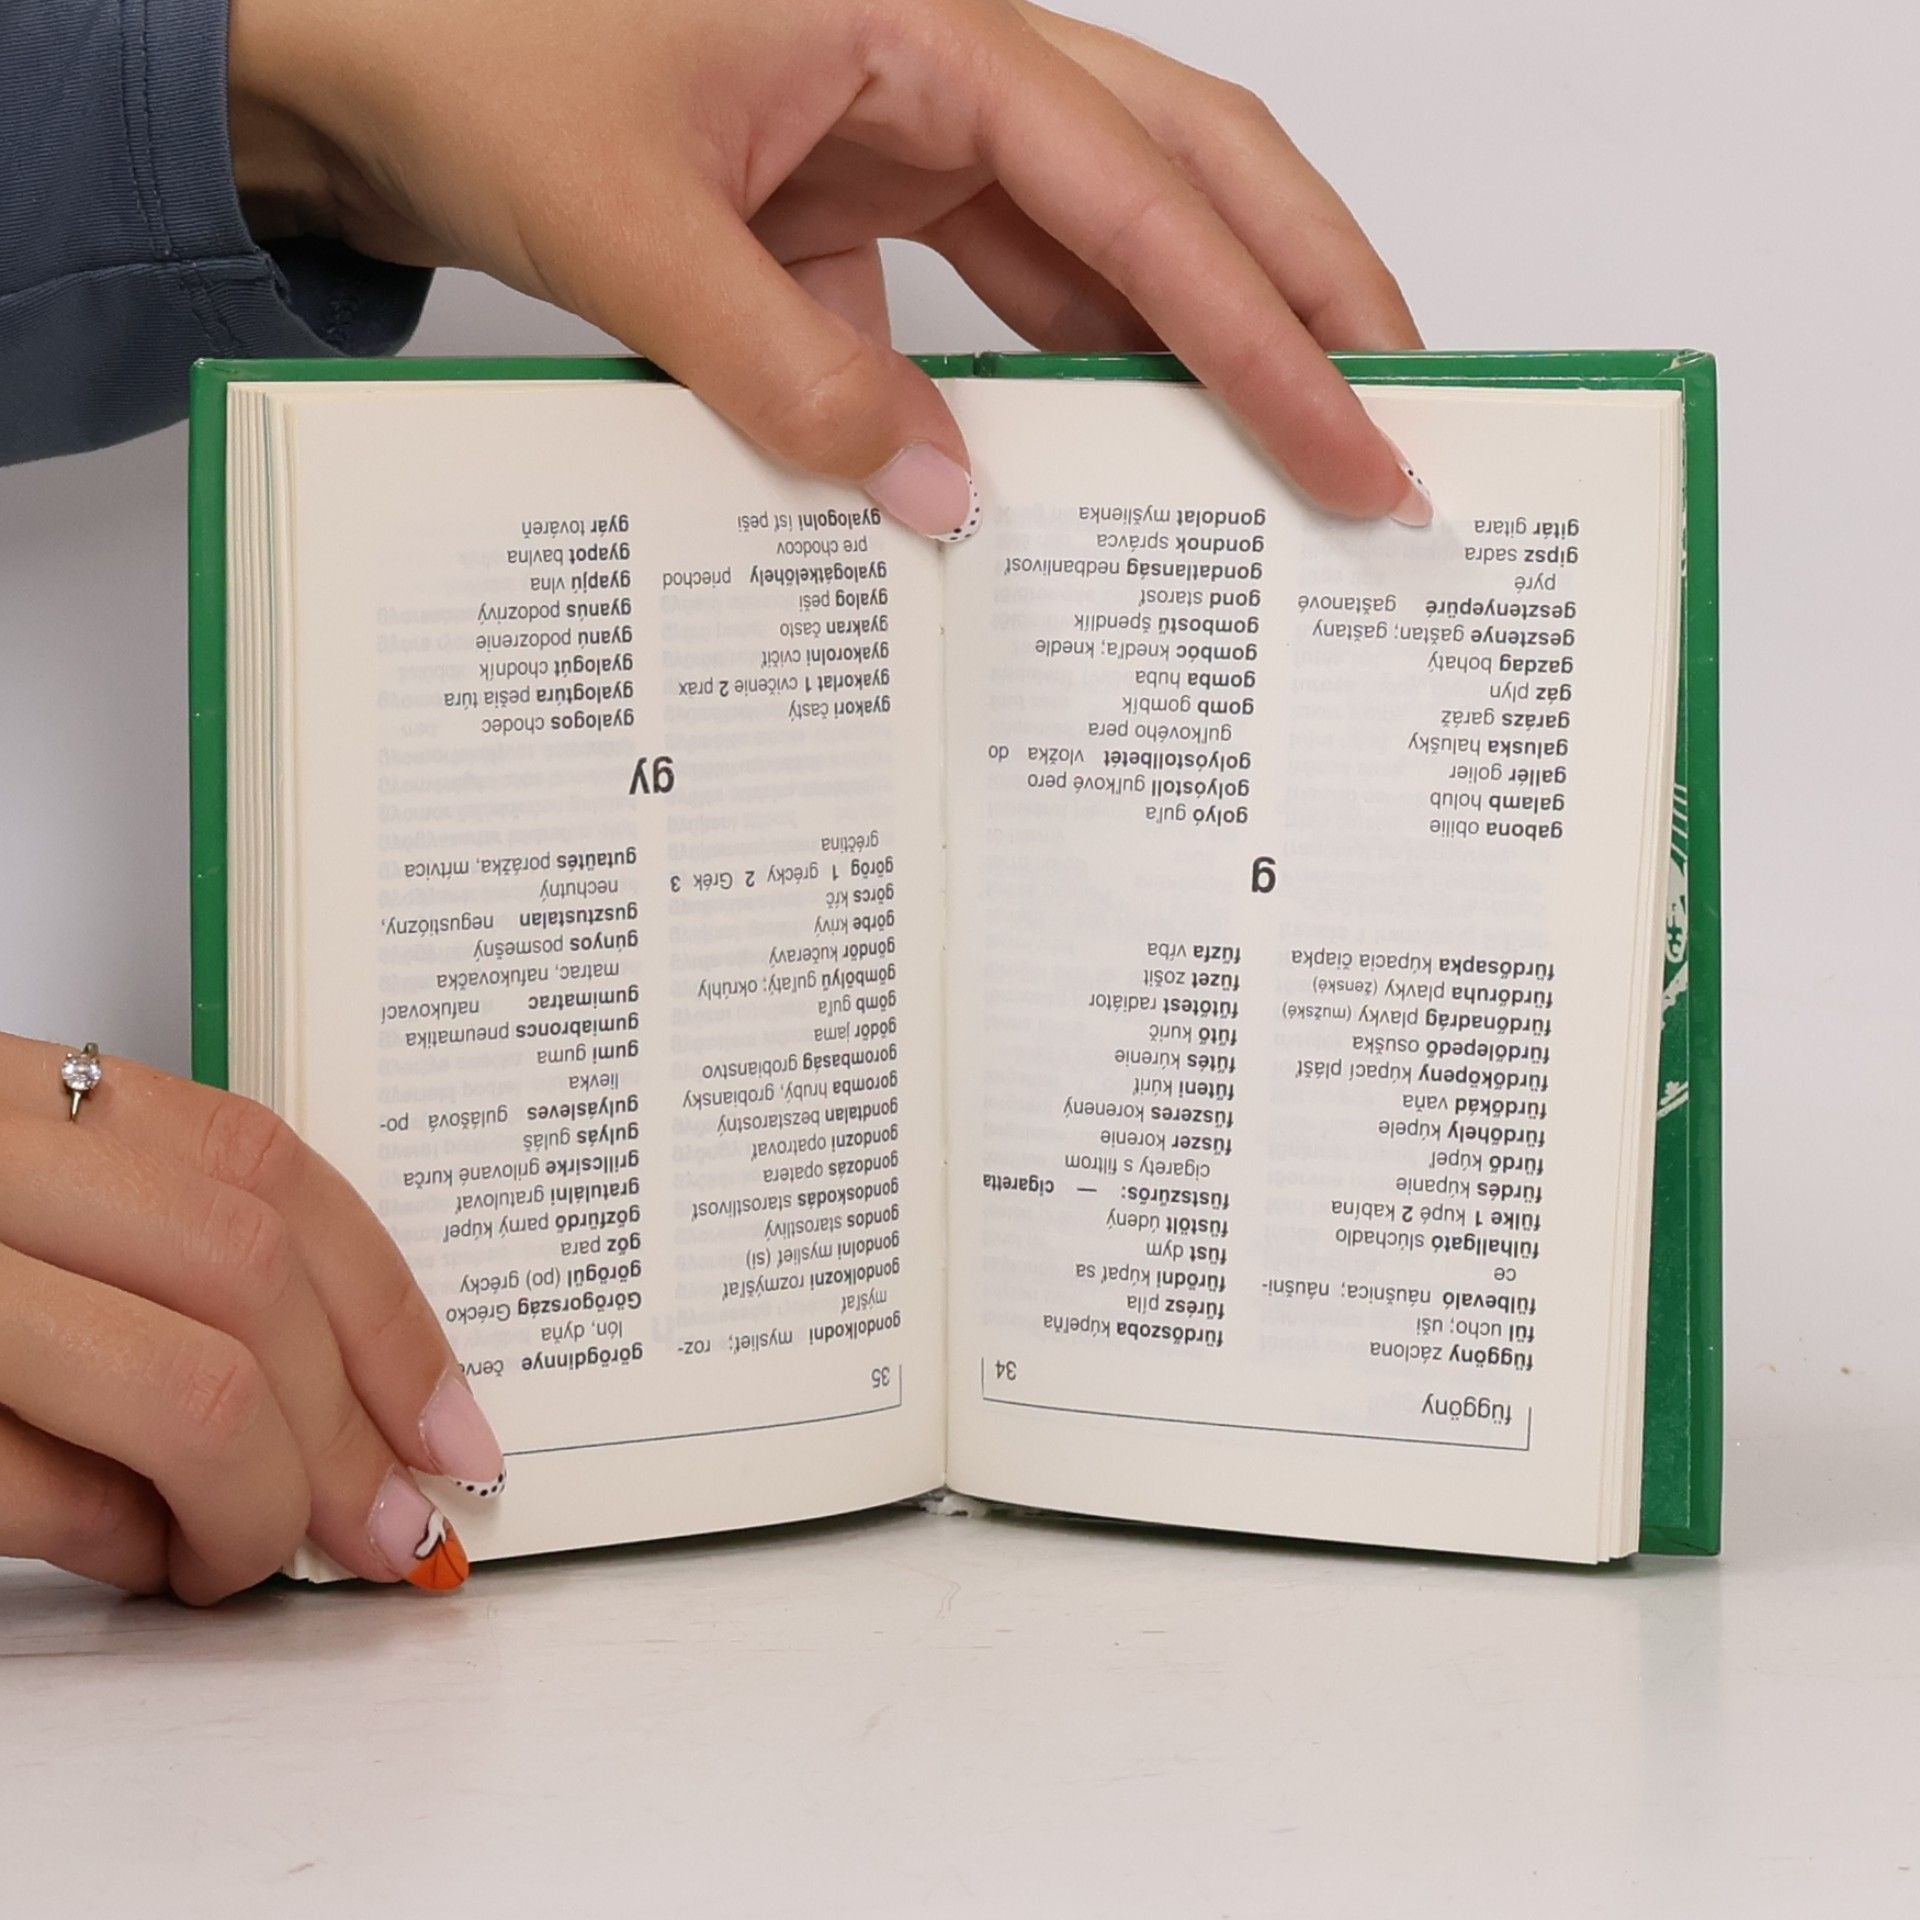 függöny
34
függöny záclona
fül ucho; uši
fülbevaló náušnica; náušni-
ce
fülhallgató slúchadlo
fülke 1 kupé 2 kabína
fürdés kúpanie
fürdő kúpeľ
fürdőhely kúpele
fürdőkád vaňa
fürdőköpeny kúpací plášť
fürdőlepedő osuška
fürdőnadrág plavky (mužské)
fürdőruha plavky (ženské)
fürdősapka kúpacia čiapka
fürdőszoba kúpeľňa
fűrész píla
fürödni kúpať sa
füst dym
füstölt údený
füstszűrős: — cigaretta
cigarety s filtrom
fűszer korenie
fűszeres korenený
fűteni kúriť
fűtés kúrenie
fűtő kurič
fűtőtest radiátor
füzet zošit
fűzfa vŕba
g
gabona obilie
galamb holub
gallér golier
galuska halušky
garázs garáž
gáz plyn
gazdag bohatý
gesztenye gaštan; gaštany
gesztenyepüré gaštanové
pyré
gipsz sadra
gitár gitara
golyó guľa
golyóstoll guľkové pero
golyóstollbetét vložka do
guľkového pera
gomb gombík
gomba huba
gombóc knedľa; knedle
gombostű špendlík
gond starosť
gondatlanság nedbanlivosť
gondnok správca
gondolat myšlienka
35
gondolkodni myslieť; roz-
mýšľať
gondolkozni rozmýšľať
gondolni myslieť (si)
gondos starostlivý
gondoskodás starostlivosť
gondozás opatera
gondozni opatrovať
gondtalan bezstarostný
goromba hrubý, grobiansky
gorombaság grobianstvo
gödör jama
gömb guľa
gömbölyű guľatý; okrúhly
göndör kučeravý
görbe krivý
görcs kŕč
görög 1 grécky 2 Grék 3
gréčtina
görögdinnye
lón, dyňa
Görögország Grécko
görögül (po) grécky
gőz para
gőzfürdő parný kúpeľ
gratulálni gratulovať
grillcsirke grilované kurča
gulyás guláš
gulyásleves gulášová po-
lievka
gumi guma
gumiabroncs pneumatika
gumimatrac nafukovací
matrac, nafukovačka
gúnyos posmešný
gusztustalan negustiózny,
nechutný
gutaütés porážka, mŕtvica
gy
gyakori častý
gyakorlat 1 cvičenie 2 prax
gyakorolni cvičiť
gyakran často
gyalog peši
gyalogátkelőhely priechod
pre chodcov
gyalogolni ísť peši
gyalogos chodec
gyalogtúra pešia túra
gyalogút chodník
gyanú podozrenie
gyanús podozrivý
gyapjú vlna
gyapot bavlna
gyár továreň